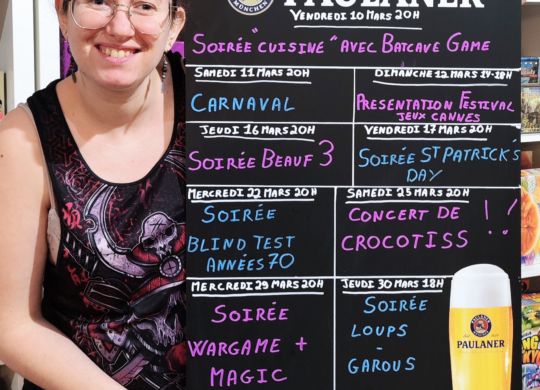 PAULANER
MÜNCHEN
VENDREDI 10 MARS 20H
SOIRÉE "CUISINE" AVEC BATCAVE GAME
SAMEDI 11 MARS 20H
CARNAVAL
DIMANCHE 12 MARS 14-18H
PRESENTATION FESTIVAL
JEUX CANNES
JEUDI 16 MARS 20H
SOIRÉE BEAUF 3
VENDREDI 17 MARS 20H
SOIRÉE ST PATRICK'S
DAY
MERCREDI 22 MARS 20H
SOIRÉE
BLIND TEST
ANNÉES 70
SAMEDI 25 MARS 20H
CONCERT DE
CROCOTISS !!
MERCREDI 29 MARS 20H
SOIRÉE
WARGAME +
MAGIC
JEUDI 30 MARS 18H
SOIRÉE
LOUPS
-
GAROUS
PAULANER